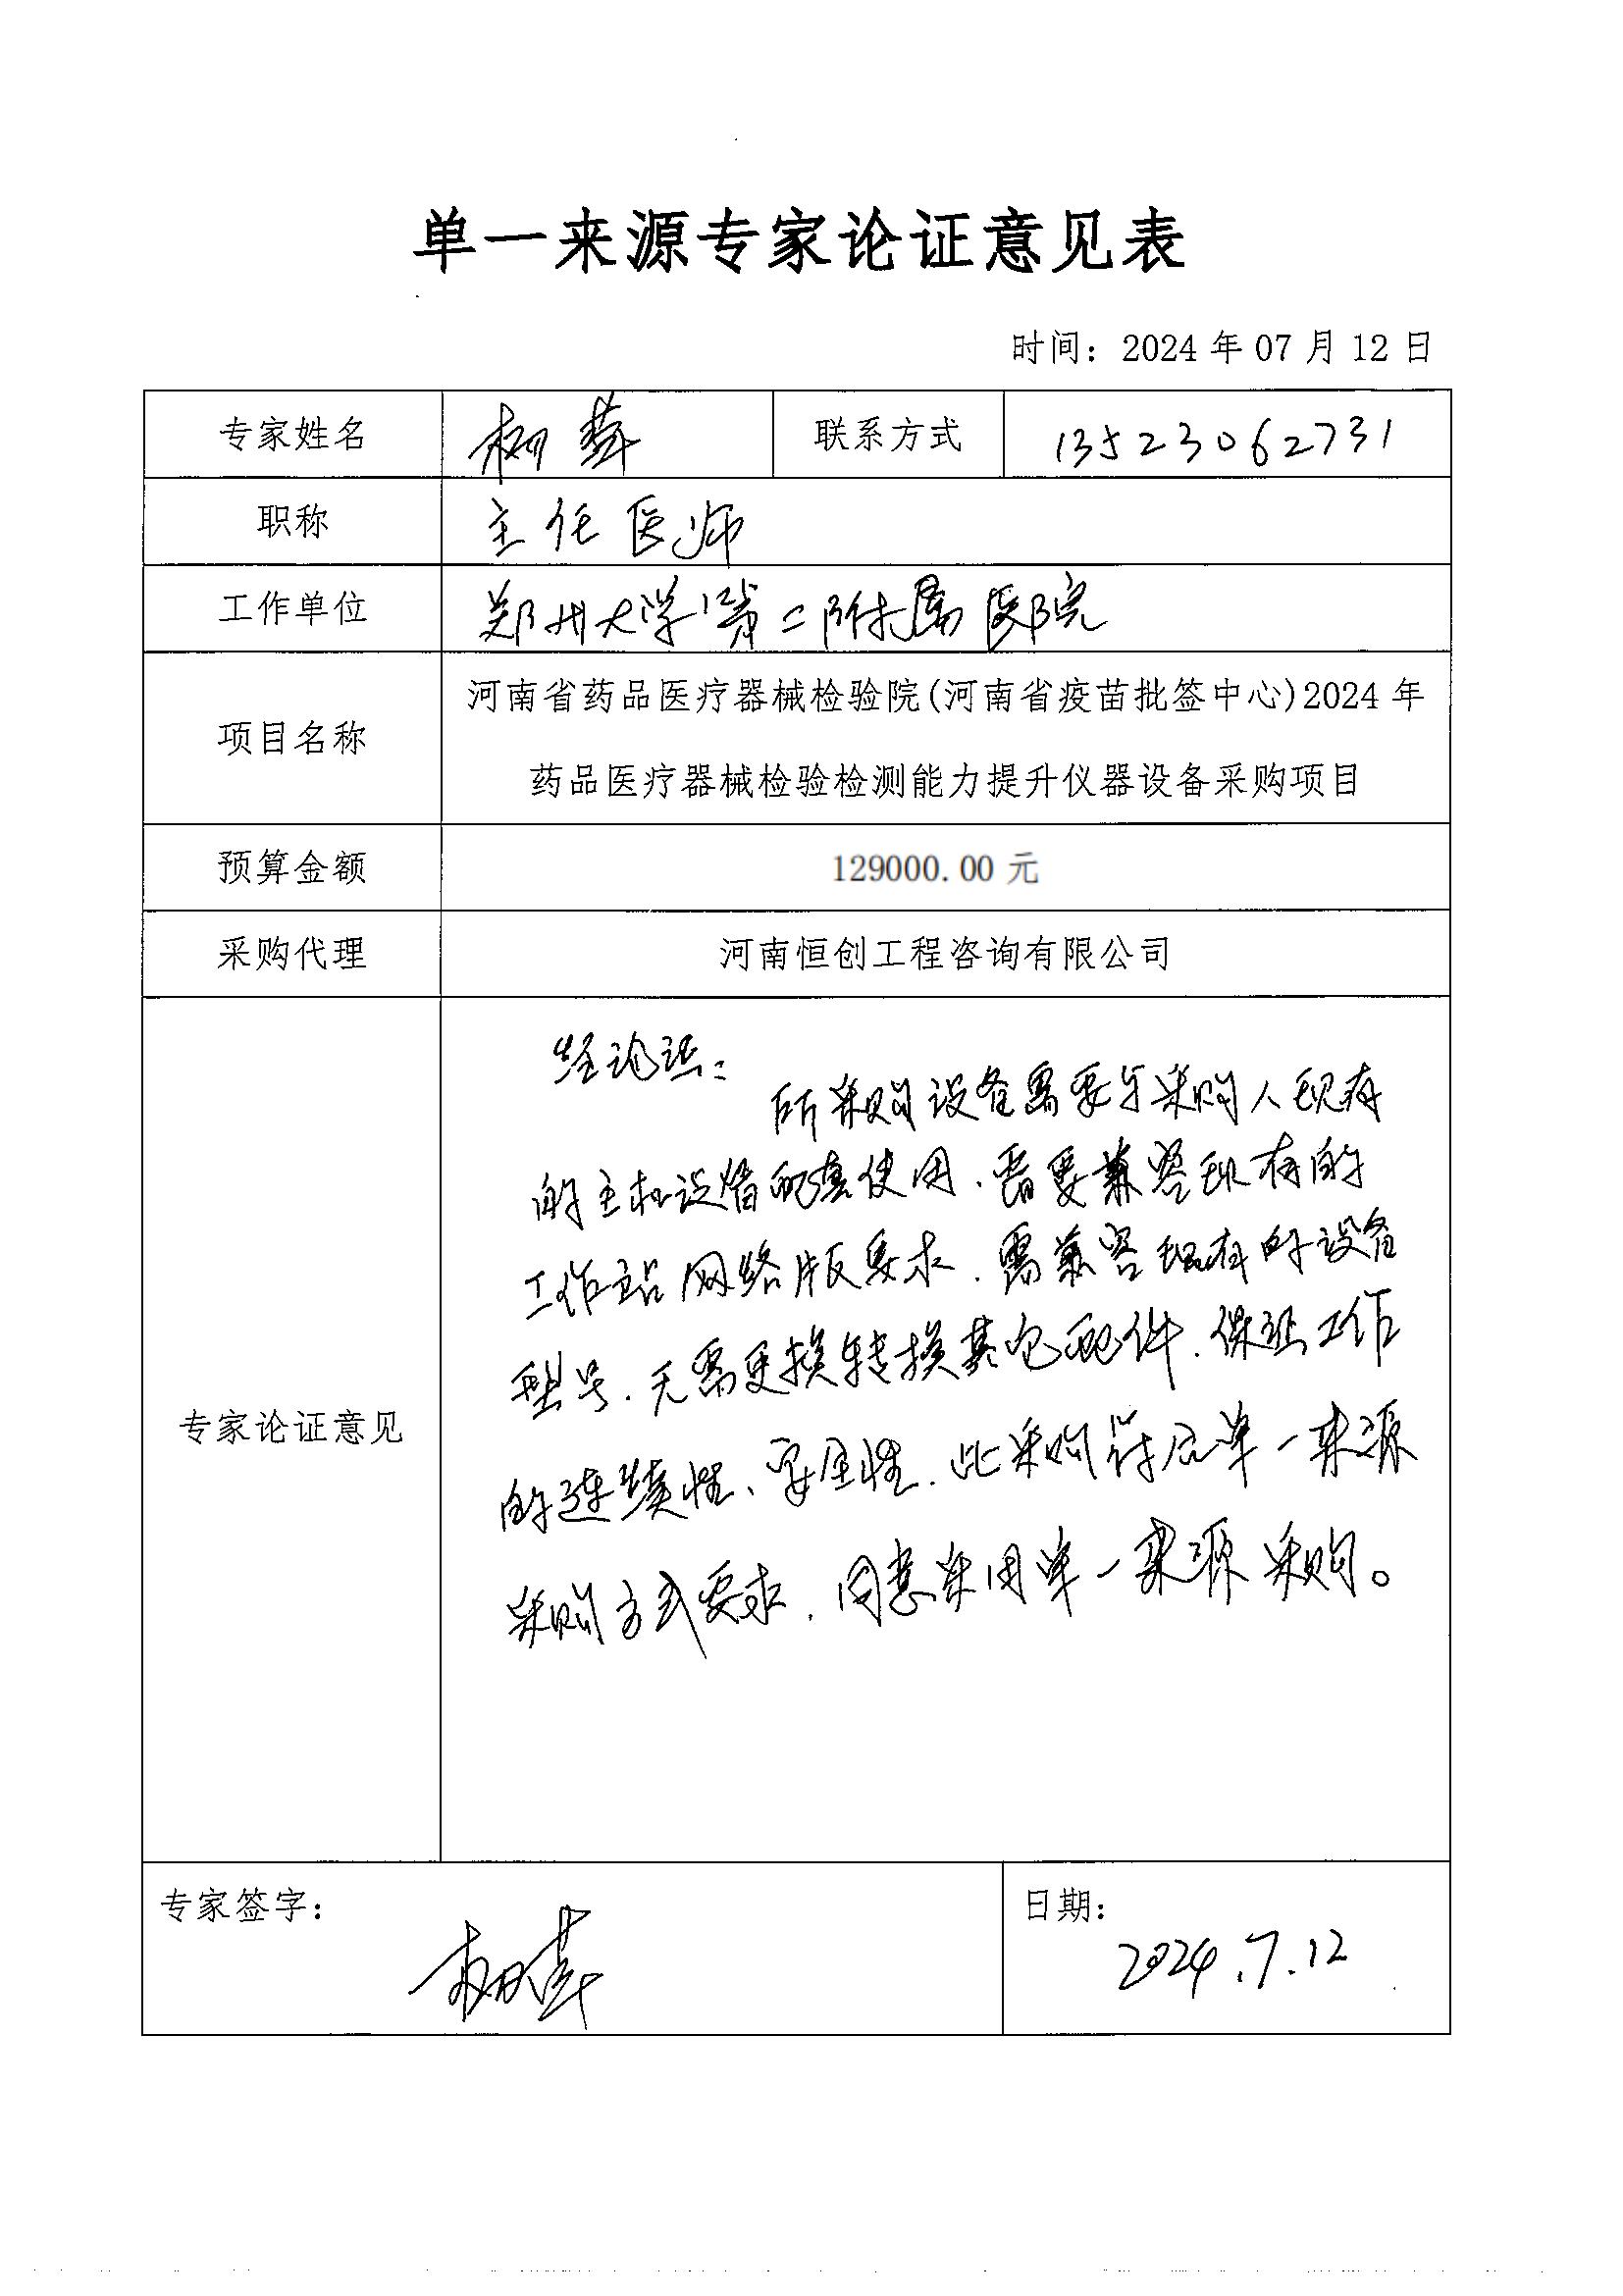 单一来源专家论证意见表
时间：2024年07月12日
专家姓名 联系方式 13523062731
职称 主任医师
工作单位 郑州大学第二附属医院
项目名称 河南省药品医疗器械检验院(河南省疫苗批签中心)2024年
药品医疗器械检验检测能力提升仪器设备采购项目
预算金额 129000.00元
采购代理 河南恒创工程咨询有限公司
专家论证意见
经论证：
所采购设备需要与采购人现有
的主机设备配套使用、需要兼容现有的
工作站网络版要求、需兼容现有的设备
型号、无需更换转换其它配件、保证工作
的连续性、安全性、此采购符合单一来源
采购方式要求、同意采用单一来源采购。
专家签字： 日期：
2024.7.12